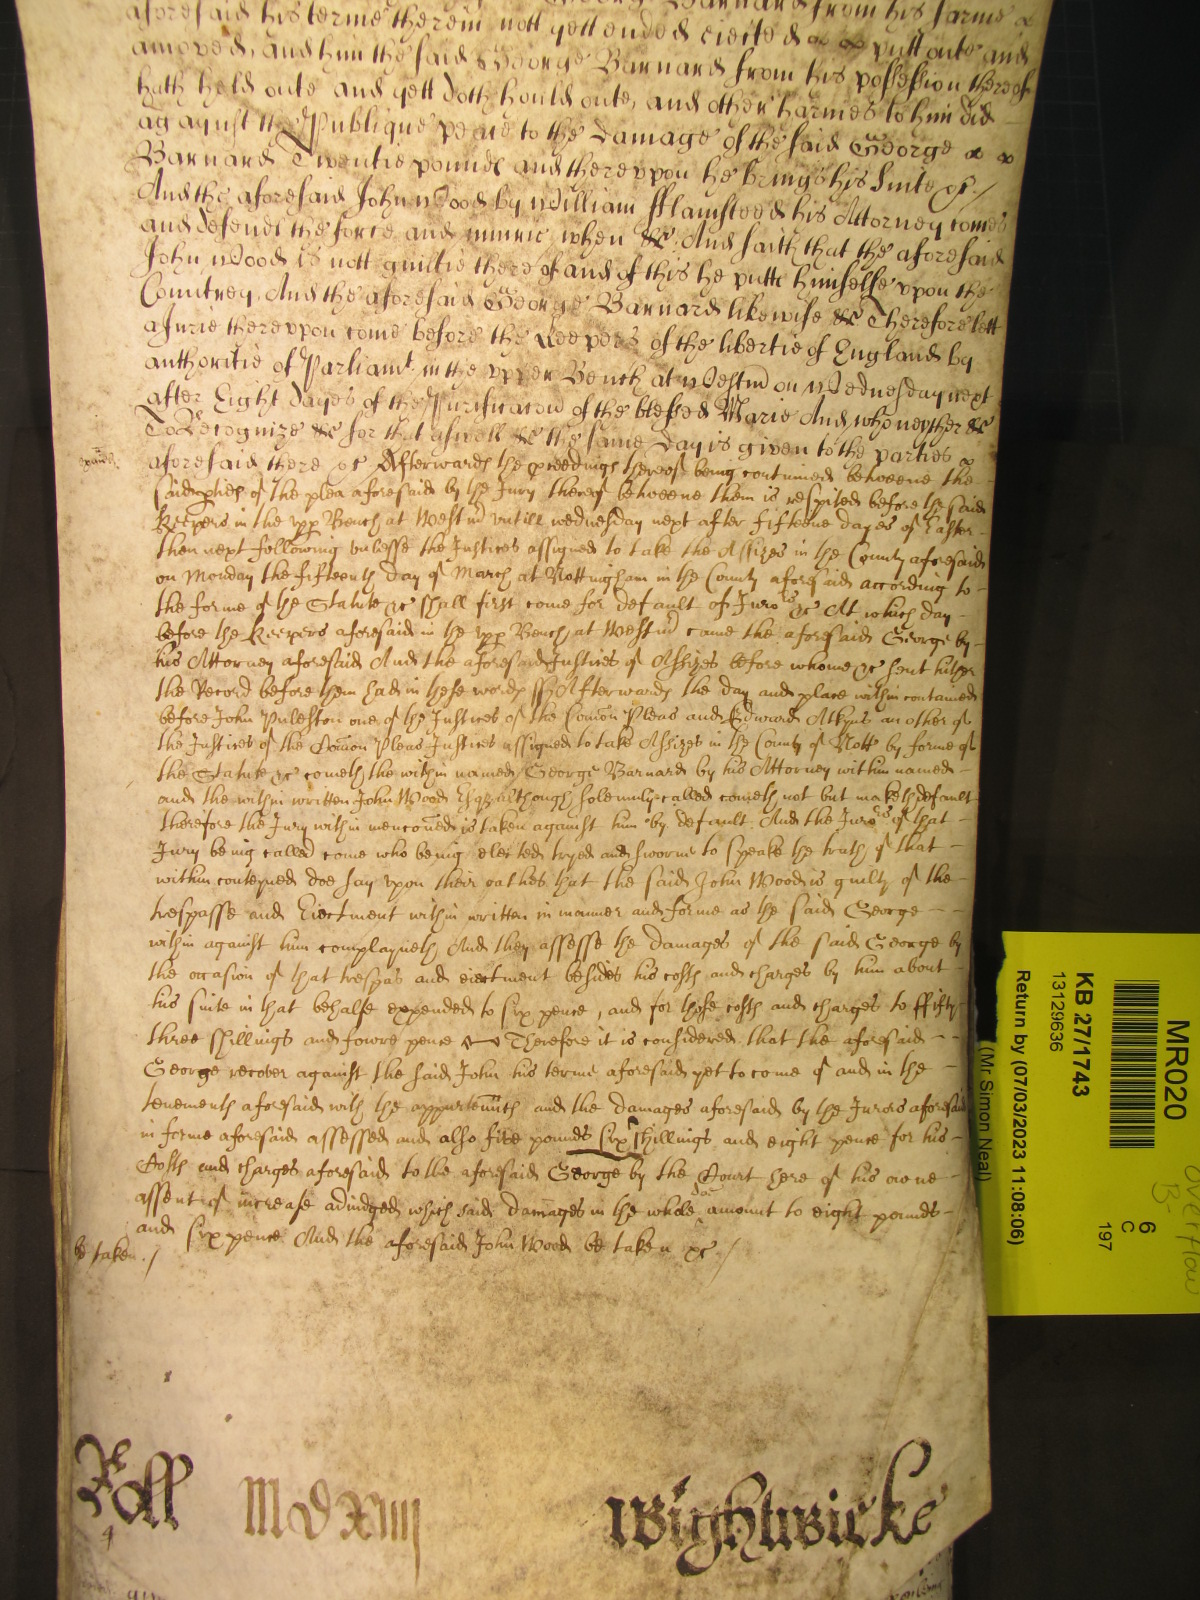 aforesaid his terme therein nott yett ended eiected & putt oute and
amoved, and him the said George Barnard from his possession thereof
hath held oute and yett doth hould oute, and other harmes to him did
against the Publique peace to the damage of the said George
Barnard Twentie pounds and thereupon he brings his Suite &c /
And the aforesaid John Wood by William Fflamsteed his Attorney comes
and defends the force and iniurie when &c And saith that the aforesaid
John Wood is nott guiltie thereof and of this he putts himselfe vpon the
Countrey, And the aforesaid George Barnard likewise &c Therefore lett
a Jurie thereuppon come before the Keepers of the libertie of England by
authoritie of Parliamt in the vpper Bench at Westmr on Wednesday next
after Eight dayes of the Purificacon of the blessed Marie And who neyther &c
To Recognize &c for that aswell &c the same day is given to the parties
aforesaid there &c Afterwards the proceedings thereof being continued betweene the
said pties of the plea aforesaid by the Jury thereof betweene them is respited before the said
Keepers in the vpp Bench at Westmr vntill wednesday next after fifteene dayes of Easter
then next following vnlesse the Justices assigned to take the Assizes in the County aforesaid
on Monday the fifteenth day of March at Nottingham in the County aforesaid according to
the forme of the Statute &c shall first come for default of Jurors &c At which day
before the Keepers aforesaid in the vpp Bench at Westmr came the aforesaid George by
his Attorney aforesaid And the aforesaid Justices of Assizes before whome &c sent hither
the Record before them had in these words ss Afterwards the day and place within contained
before John Puleston one of the Justices of the Comon Pleas and Edward Atkyns an other of
the Justices of the Comon Pleas Justices assigned to take Assizes in the County of Nott by forme of
the Statute &c cometh the within named George Barnard by his Attorney within named
and the within written John Wood Esqr although solemnly called cometh not but maketh default
therefore the Jury within menconed is taken against him by default And the Jurors of that
Jury being called come who being elected tryed and sworne to speake the truth of that
within conteyned doe say vpon their oathes that the said John Wood is guilty of the
trespasse and Eiectment within written in manner and forme as the said George
within against him complayneth And they assesse the damages of the said George by
the occasion of that trespas and eiectment besides his costs and charges by him about
his suite in that behalfe expended to six pence, and for those costs and charges to ffifty
three shillings and fowre pence Therefore it is considered that the aforesaid
George recover against the said John his terme aforesaid yet to come of and in the
tenements aforesaid with the appurtennts and the damages aforesaid by the Jurors aforesaid
in forme aforesaid assessed and also five pounds six shillings and eight pence for his
Costs and charges aforesaid to the aforesaid George by the Court here of his owne
assent of increase adiudged which said damages in the whole doe amount to eight pounds
and six pence And the aforesaid John Wood be taken &c /
be taken /
Roll MDXIIII Wightwicke
4
MR020
KB 27/1743
13129636
Return by (07/03/2023 11:08:06)
(Mr Simon Neal)
6
C
197
overflow
B-